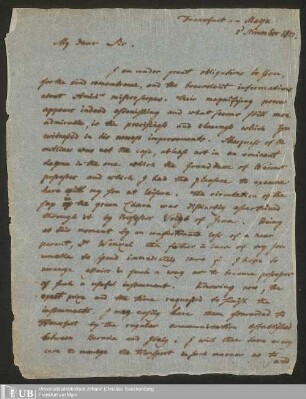 Francfort on Mayn
1 November 1827.
My dear Sir.
I am under great obligations to you,
for the kind remembrance, and the benevolent informations
about Amici's microscopes. Their magnifying power
appears indeed astonishing and what seems still more
admirable, is the precision and clearness which you
witnessed in his newest improvements. Sharpness of the
outlines was not the case, at least not in an eminent
degree in the one which the Grand Duke of Weimar
possesses and which I had the pleasure to examine
here with my son at leisure. The circulation of the
sap in the green Chara was distinctly ascertained
through it by Professor Voigt of Jena. Being
at this moment by an unfortunate loss of a near
parent, Dr Wenzel the father in law of my son
unable to spend immediately more I hope to
arrange affairs in such a way as to become possessor
of such a useful instrument. Knowing now, the
exact price and the time required to finish the
instruments, I may easily have them forwarded to
Francfort by the regular communication established
between Bavaria and Italy. I will then have every
care to manage the transport in such manner as to
send
UB Universitätsbibliothek Johann Christian Senckenberg
Frankfurt am Main